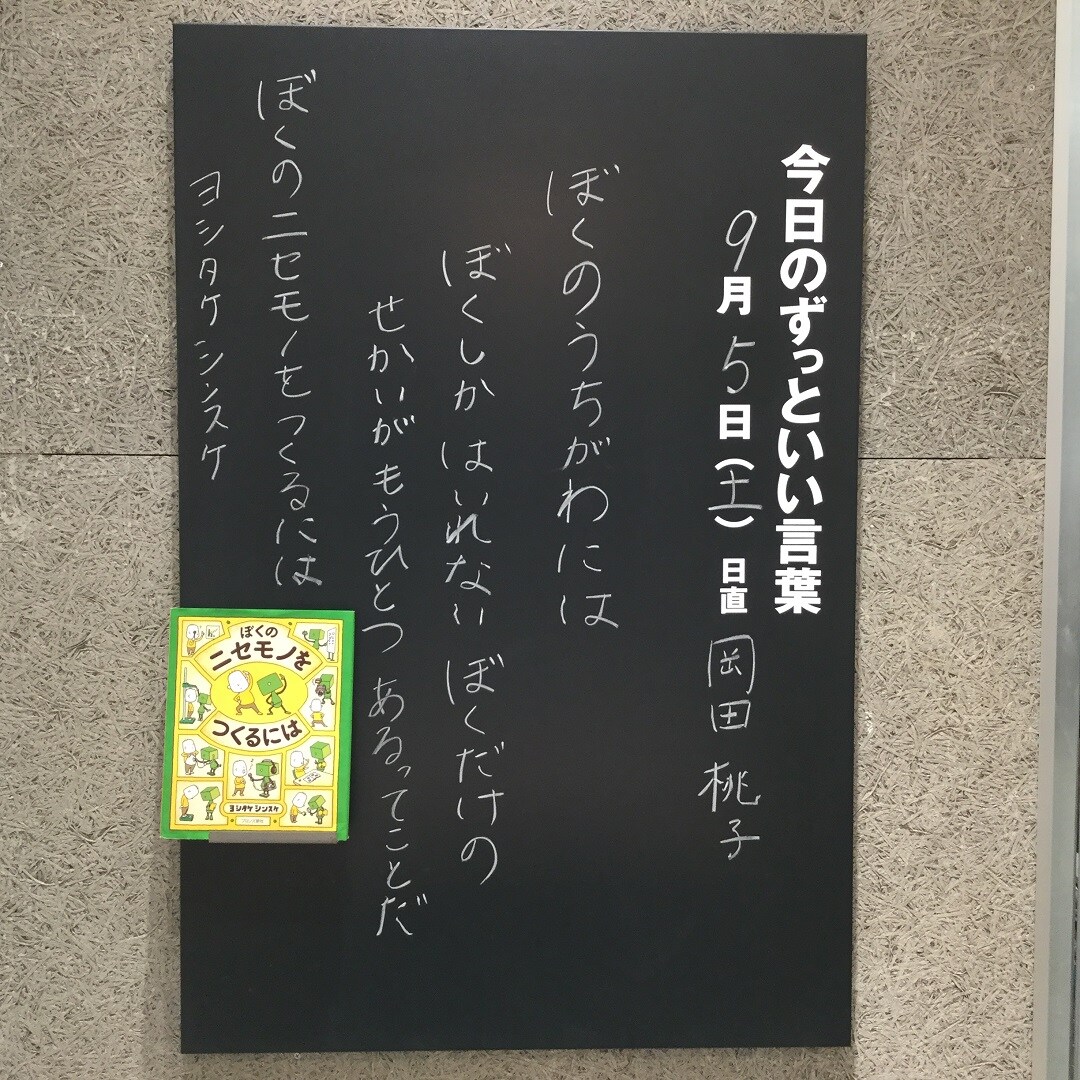 今日のずっといい言葉
9月5日(土) 日直 岡田 桃子
ぼくのうちがわには
ぼくしか はいれない ぼくだけの
せかいがもうひとつ あるってことだ
ぼくのニセモノをつくるには
ヨシタケシンスケ
ぼくの
ニセモノを
つくるには
ヨシタケ シンスケ